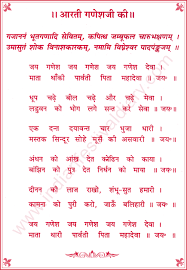 ।। आरती गणेशजी की ।।
गजाननं भूतगणादि सेवितम्, कपित्थ जम्बूफल चारुभक्षणम् ।
उमासुतं शोक विनाशकारकम्, नमामि विघ्नेश्वर पादपङ्कजम् ।।
जय गणेश जय गणेश जय गणेश देवा ।
माता थाँकी पार्वती पिता महादेवा ।। जय ।।
धूप चढ़े चढ़े और चढ़े मेवा ।
लडुवन को भोग लगे सन्त करे सेवा ।।
एक दन्त दयावन्त चार भुजा धारी ।
मस्तक सिन्दूर सोहे मूसे की असवारी ।।
अंधन को आंख देत कोढ़िन को काया ।
बांझिन को पुत्र देत निर्धन को माया ।।
दीनन की लाज राखो, शंभु-सुत हमारी ।
कामना को पूरी करो, जाऊँ बलिहारी ।।
जय गणेश जय गणेश जय गणेश देवा ।
माता थारी पार्वती पिता महादेवा ।। जय ।।